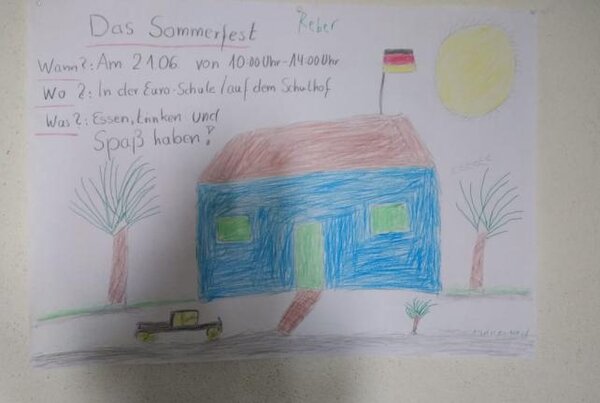 Das Sommerfest
Reber
Wann?: Am 21.06 von 10:00 Uhr-14:00 Uhr
Wo ?: In der Euro-Schule / auf dem Schulhof
Was?: Essen, trinken und
Spaß haben!